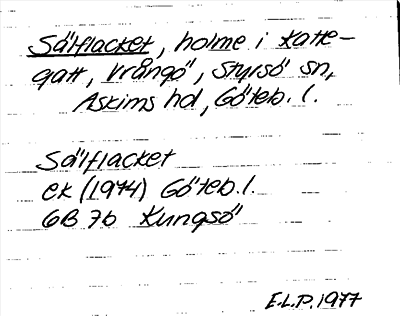 Sälflacket, holme i Katte-
gatt, Vrångö, Styrsö sn,
Askims hd, Göteb. l.
Sälflacket
ek (1974) Göteb. l.
6B 7b Kungsö
E.L.P. 1977